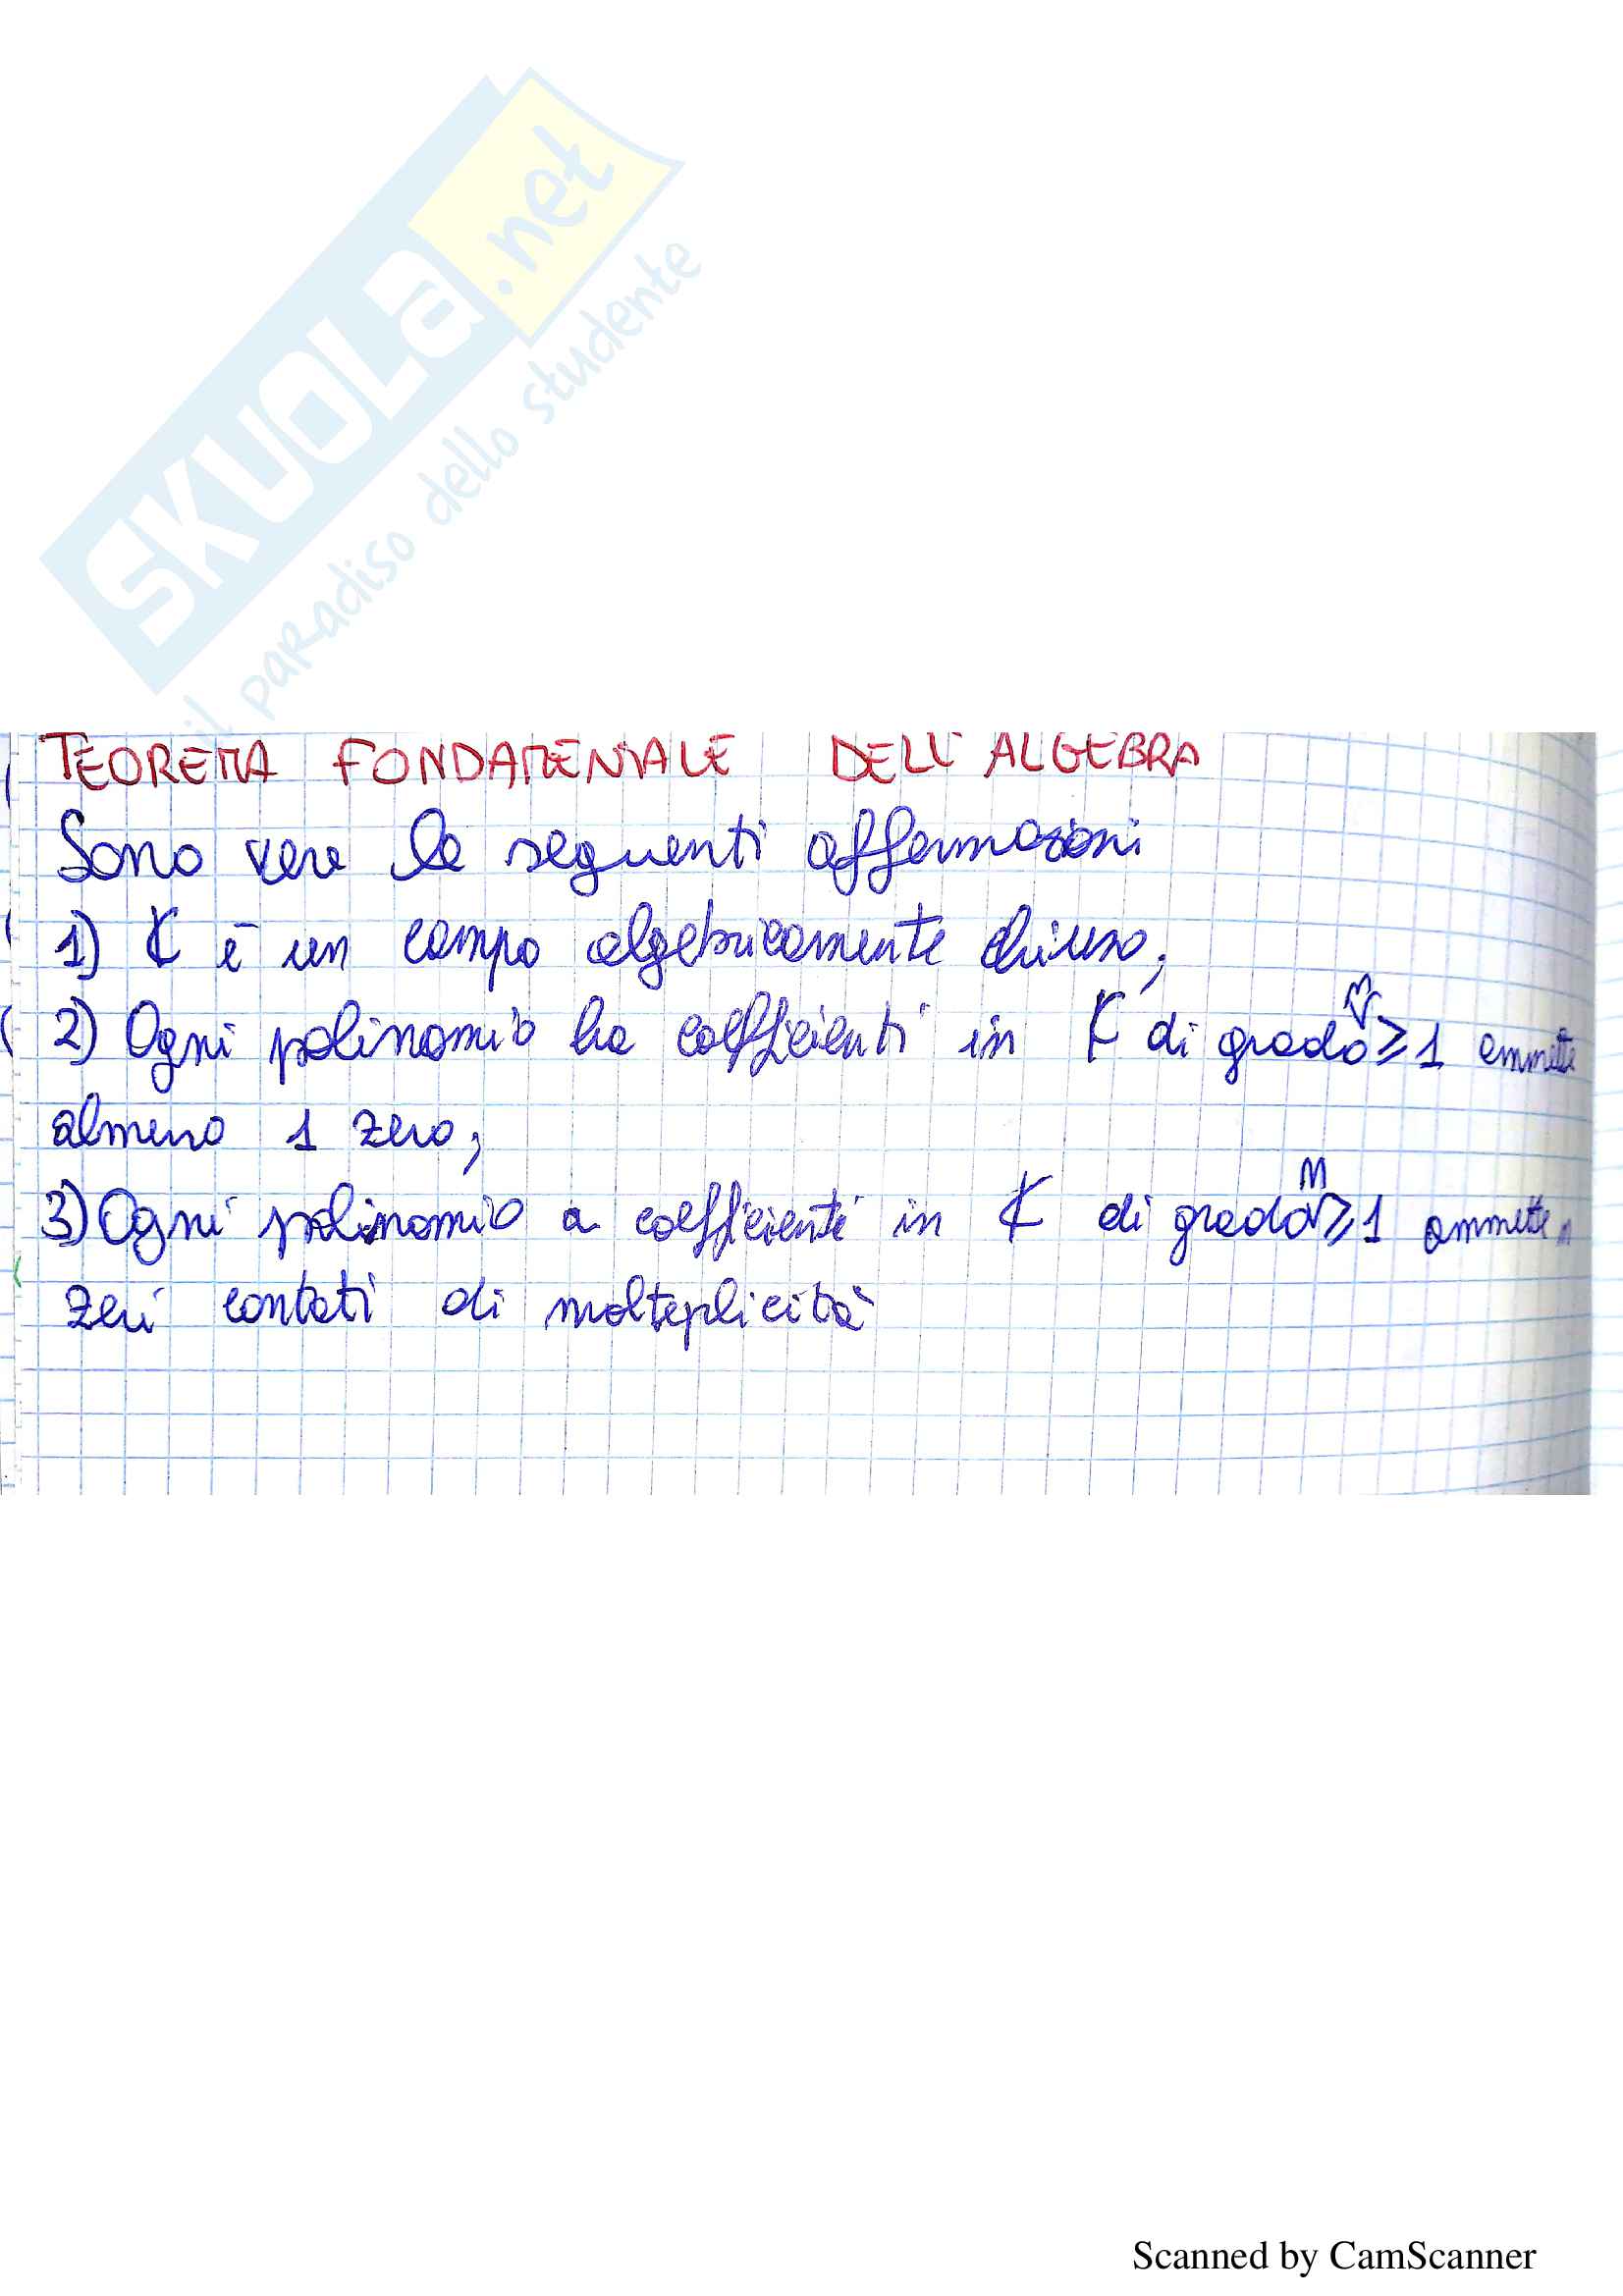 SKUOLA.net
il paradiso dello studente
TEOREMA FONDAMENTALE DELL'ALGEBRA
Sono vere le seguenti affermazioni
1) ℂ è un campo algebricamente chiuso;
2) Ogni polinomio ha coefficienti in ℂ di grado n ≥ 1 ammette
almeno 1 zero;
3) Ogni polinomio a coefficienti in ℂ di grado n ≥ 1 ammette n
zeri contati di molteplicità
Scanned by CamScanner